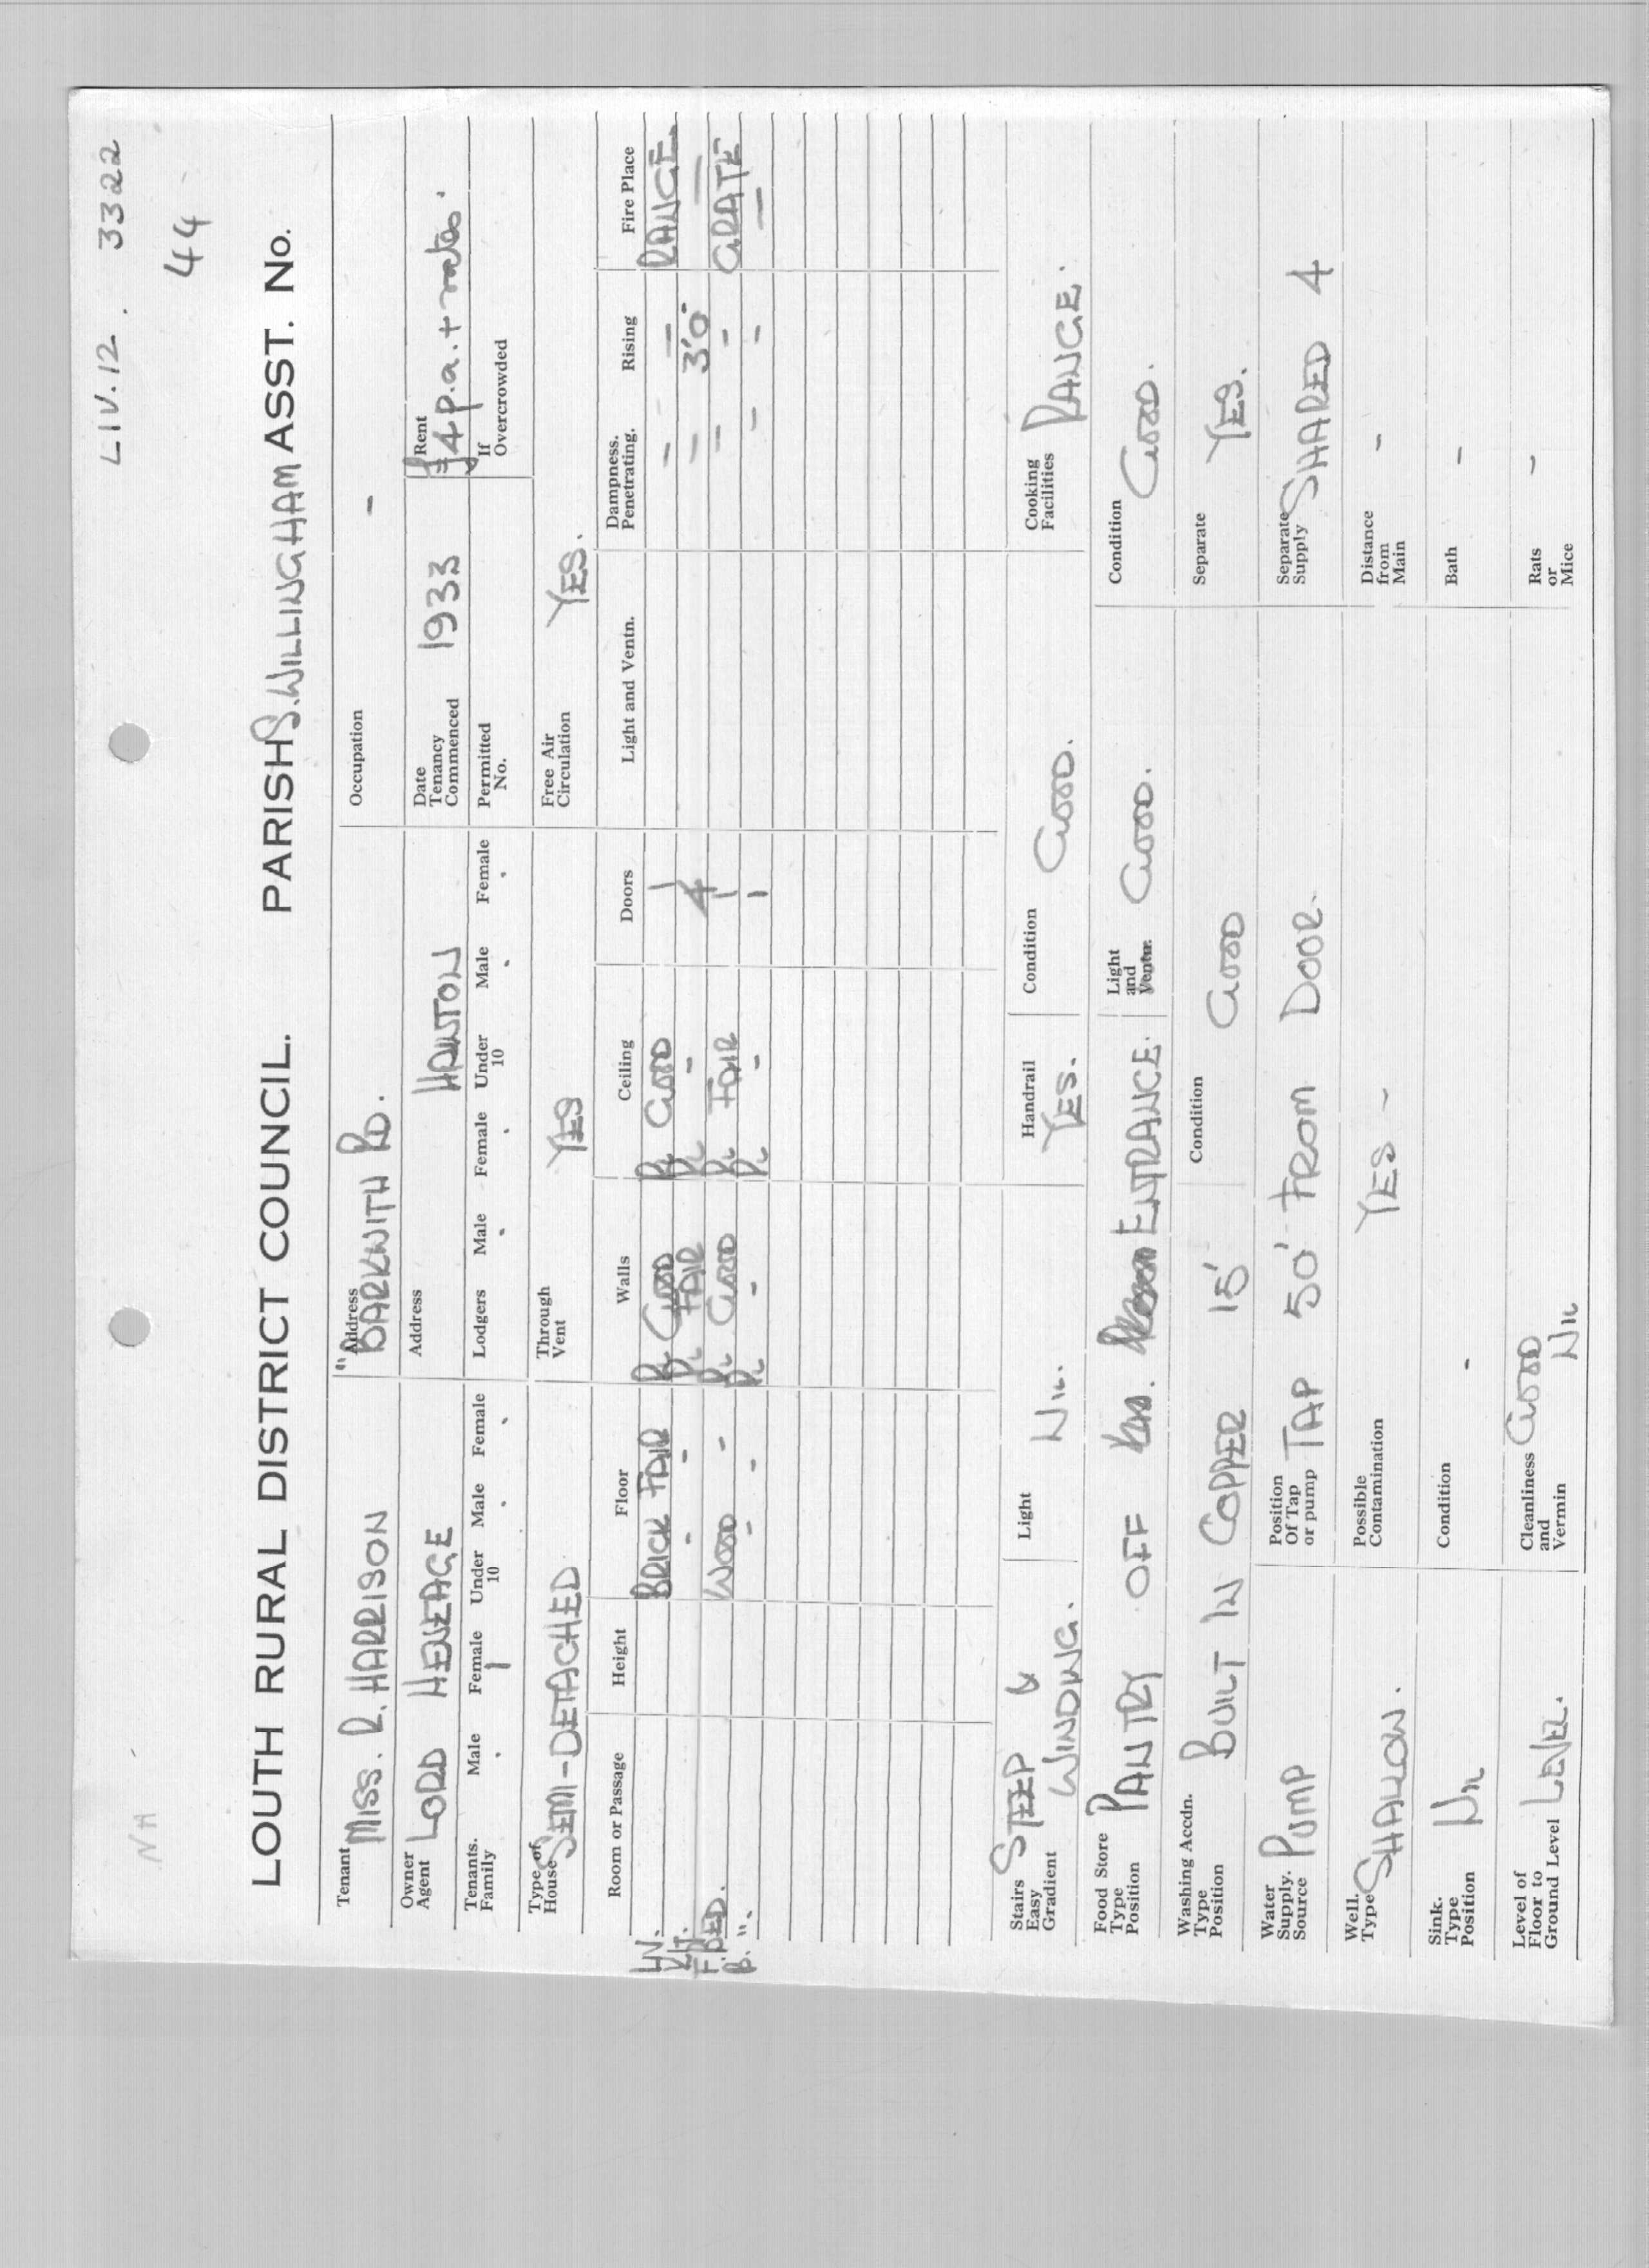 NH
LIV.12. 3322
44
LOUTH RURAL DISTRICT COUNCIL. PARISH S. WILLINGHAM ASST. No.
Tenant MISS. R. HARRISON Address "BARKWITH RD. Occupation -
Owner Agent LORD HENEAGE Address HAINTON Date Tenancy Commenced 1933 Rent £4 p.a. + rates.
Tenants. Family Male . Female 1 Under 10 Male . Female . Lodgers Male . Female . Under 10 Male . Female . Permitted No. If Overcrowded
Type of House SEMI-DETACHED Through Vent YES Free Air Circulation YES.
Room or Passage Height Floor Walls Ceiling Doors Light and Ventn. Dampness. Penetrating. Rising Fire Place
LIV. BRICK FAIR PL GOOD PL GOOD 1 - - RANGE.
KIT. - - PL FAIR PL - 4 - 3'0" -
F. BED. WOOD - PL GOOD PL FAIR 1 - - GRATE
B. ". - - PL - PL - 1 - - -
Stairs Easy Gradient STEEP & WINDING. Light NIL. Handrail YES. Condition GOOD. Cooking Facilities RANGE.
Food Store Type Position PANTRY OFF ENTRANCE. Light and Ventn. GOOD. Condition GOOD.
Washing Accdn. Type Position BUILT IN COPPER 15' Condition GOOD Separate YES.
Water Supply. Source PUMP Position Of Tap or pump TAP 50' FROM DOOR. Separate Supply SHARED 4
Well. Type SHALLOW. Possible Contamination YES - Distance from Main -
Sink. Type Position NIL Condition - Bath -
Level of Floor to Ground Level LEVEL. Cleanliness and Vermin GOOD NIL Rats or Mice -